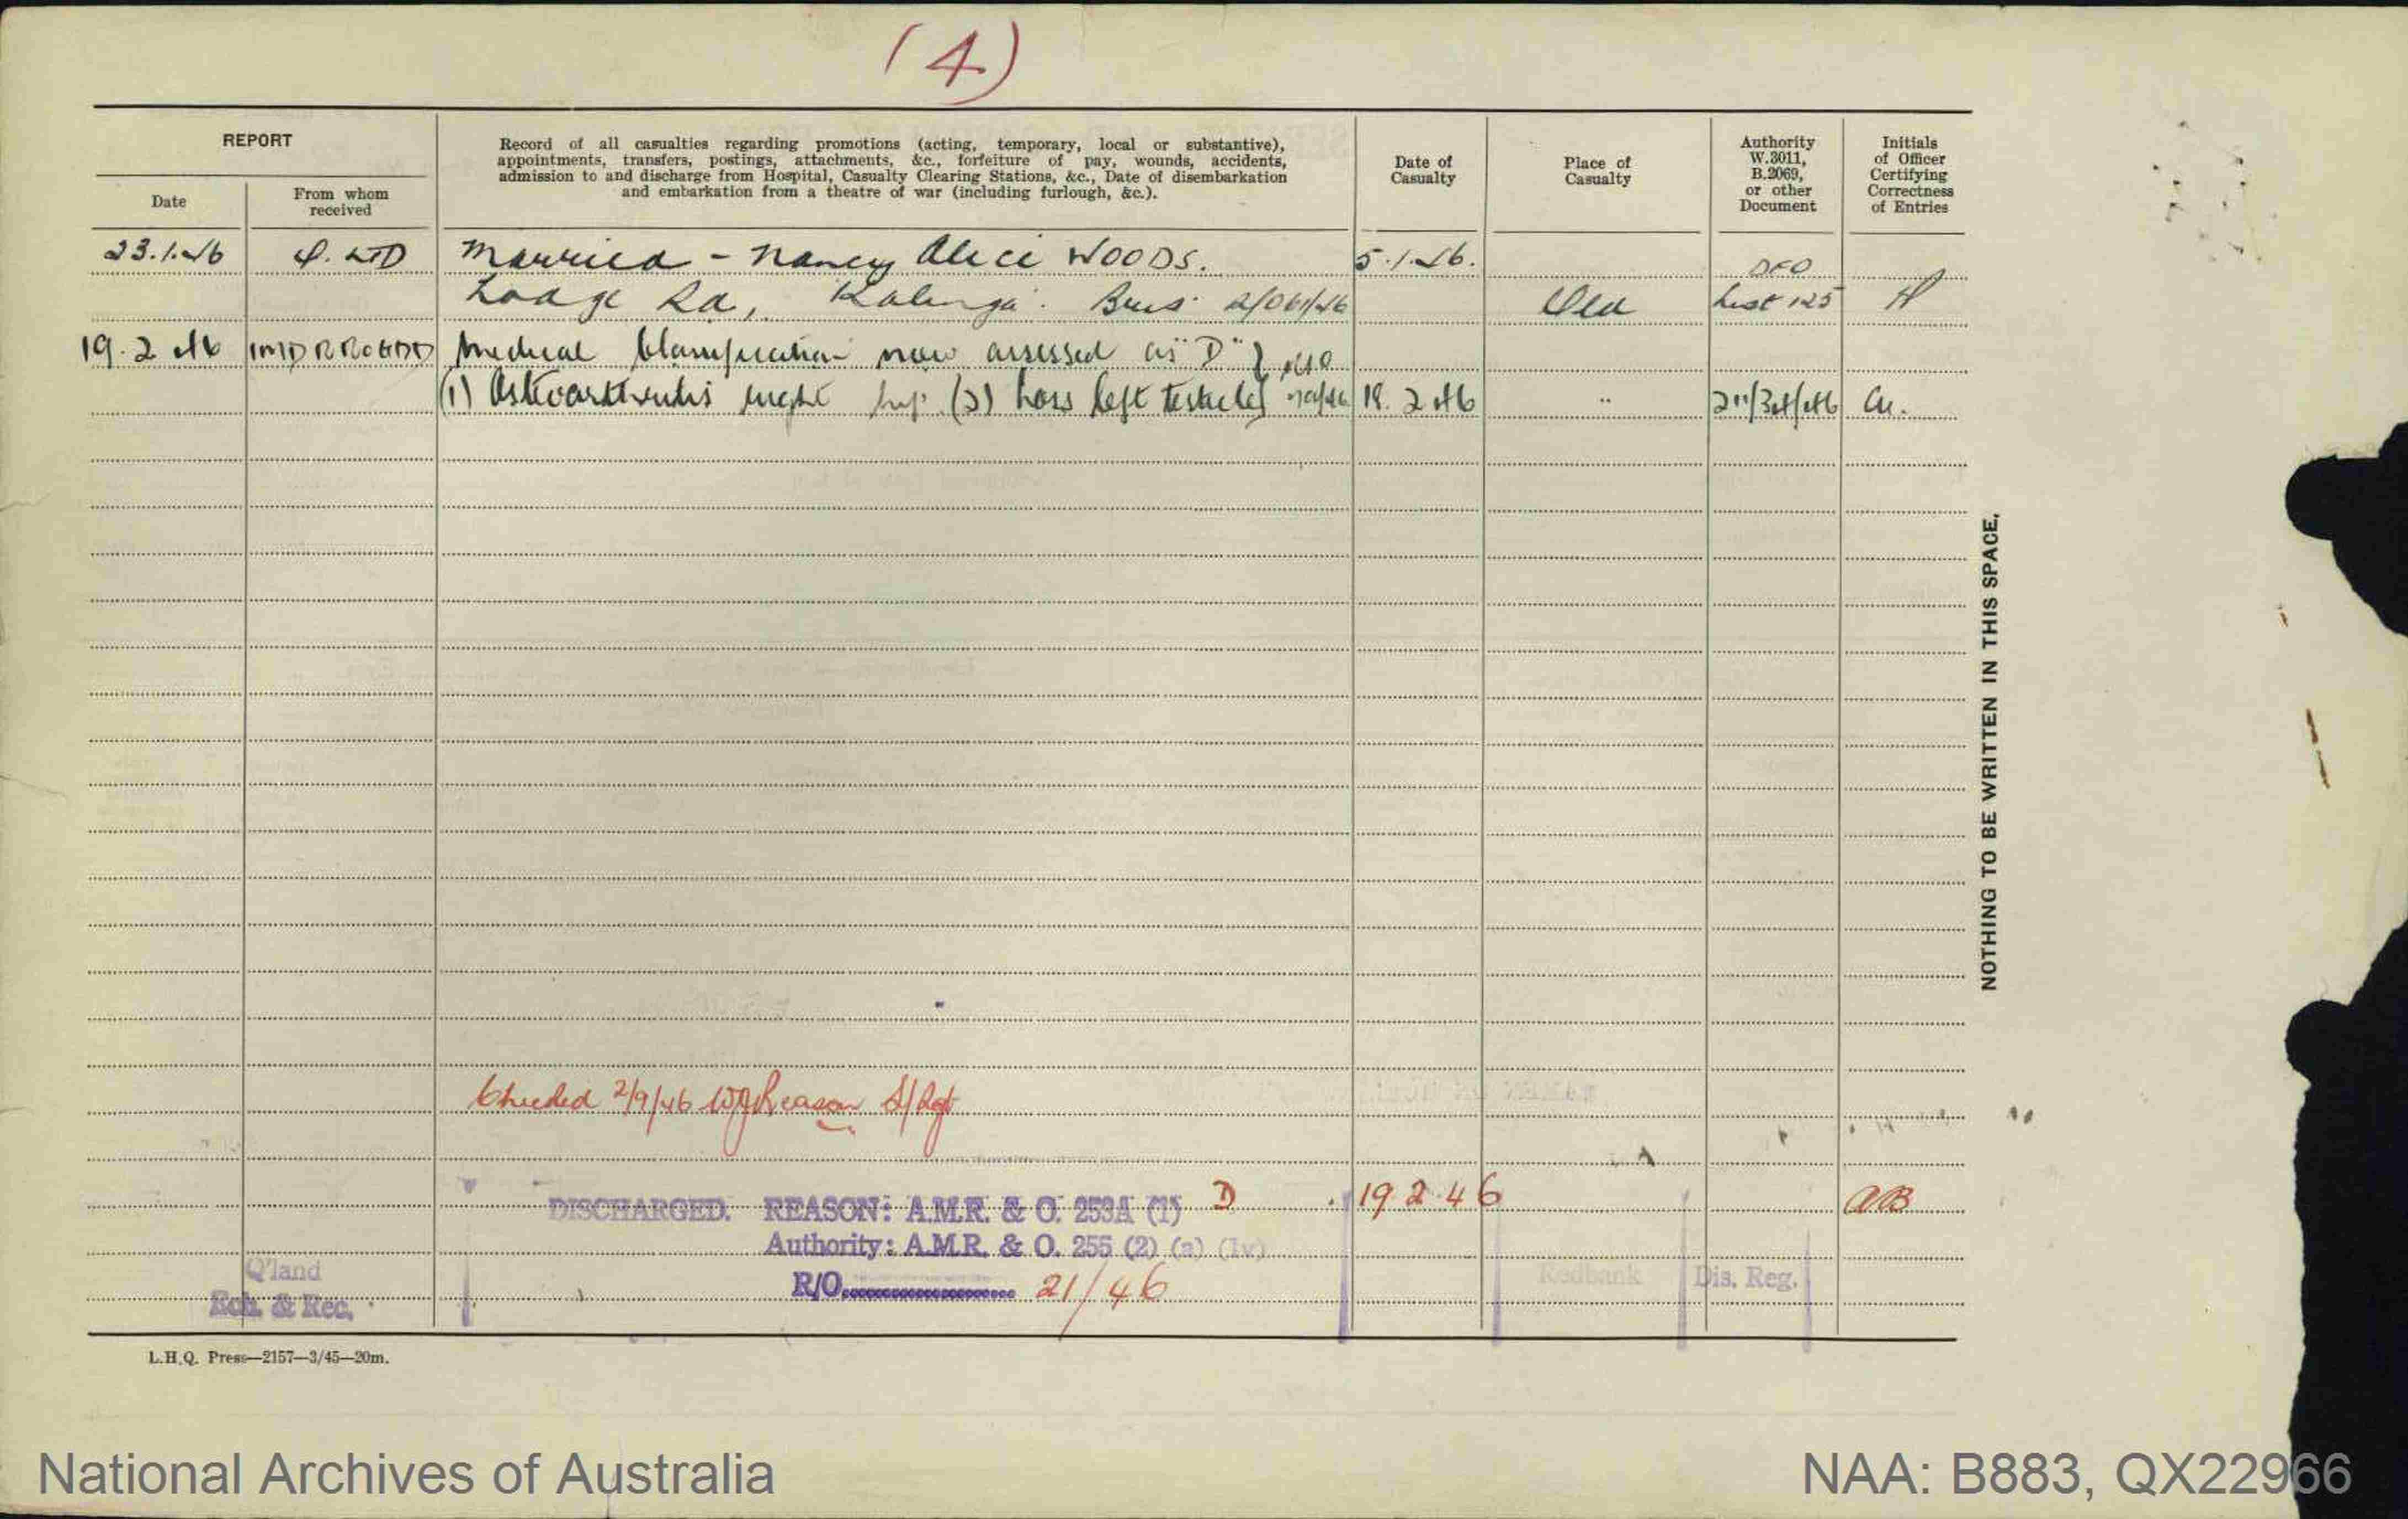 (4)
REPORT
Date
From whom
received
Record of all casualties regarding promotions (acting, temporary, local or substantive),
appointments, transfers, postings, attachments, &c., forfeiture of pay, wounds, accidents,
admission to and discharge from Hospital, Casualty Clearing Stations, &c., Date of disembarkation
and embarkation from a theatre of war (including furlough, &c.).
Date of
Casualty
Place of
Casualty
Authority
W.3011,
B.2069,
or other
Document
Initials
of Officer
Certifying
Correctness
of Entries
23.1.46 Married - Nancy Alice WOODS. 5.1.46.
Lodge Rd, Kalinga. Bris Qld List 125
19.2.46 Medical Classification now assessed as "D"
(1) Osteoarthritis right hip (2) Loss left testicle 18.2.46 "
NOTHING TO BE WRITTEN IN THIS SPACE.
Checked 2/9/46 S/Sgt
DISCHARGED. REASON: A.M.R. & O. 253A (1) D 19 2 46 AB
Authority: A.M.R. & O. 255 (2) (a) (iv)
Q'land
Ech. & Rec.
R/O 21/46
Redbank
Dis. Reg.
L.H.Q. Press—2157—3/45—20m.
National Archives of Australia
NAA: B883, QX22966